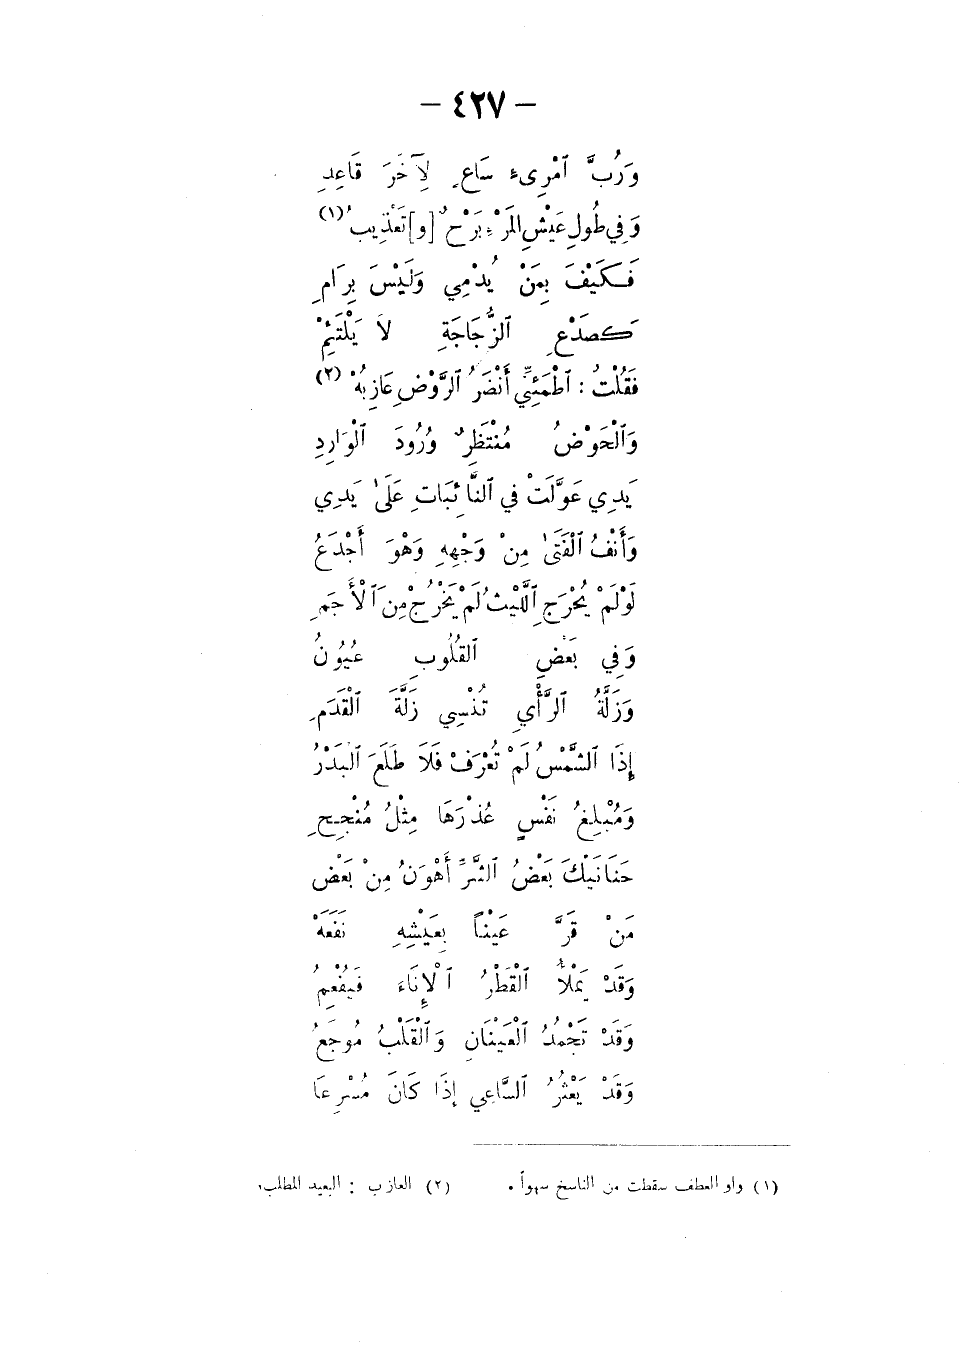 - ٤٢٧ -
وَرُبَّ ٱمْرِىءٍ سَاعٍ لِآخَرَ قَاعِدِ
وَفِي طُولِ عَيْشِ المَرْءِ بَرْحٌ [و] تَعْذِيبُ (١)
فَكَيْفَ بِمَنْ يُدْمِي وَلَيْسَ بِرَامِ
كَصَدْعِ ٱلزُّجَاجَةِ لَا يَلْتَئِمْ
فَقُلْتُ : ٱطْمَئِنِّي أَنْضَرُ ٱلرَّوْضِ عَازِبُهْ (٢)
وَٱلْحَوْضُ مُنْتَظِرٌ وُرُودَ ٱلْوَارِدِ
يَدِي عَوَّلَتْ فِي ٱلنَّائِبَاتِ عَلَىٰ يَدِي
وَأَنْفُ ٱلْفَتَىٰ مِنْ وَجْهِهِ وَهْوَ أَجْدَعُ
لَوْلَمْ يُحْرَجِ ٱللَّيْثُ لَمْ يَخْرُجْ مِنَ ٱلْأَجَمِ
وَفِي بَعْضِ ٱلقُلُوبِ عُيُونُ
وَزَلَّةُ ٱلرَّأْيِ تُنْسِي زَلَّةَ ٱلْقَدَمِ
إِذَا ٱلشَّمْسُ لَمْ تُعْرَفْ فَلَا طَلَعَ ٱلبَدْرُ
وَمُبْلِغُ نَفْسٍ عُذْرَهَا مِثْلُ مُنْجِحِ
حَنَانَيْكَ بَعْضُ ٱلشَّرِّ أَهْوَنُ مِنْ بَعْضِ
مَنْ قَرَّ عَيْنًا بِعَيْشِهِ نَفَعَهْ
وَقَدْ يَمْلَأُ ٱلْقَطْرُ ٱلْإِنَاءَ فَيُفْعِمُ
وَقَدْ تَجْمُدُ ٱلْعَيْنَانِ وَٱلْقَلْبُ مُوجَعُ
وَقَدْ يَعْثُرُ ٱلسَّاعِي إِذَا كَانَ مُسْرِعَا
(١) واو العطف سقطت من الناسخ سهواً . (٢) العازب : البعيد المطلب.